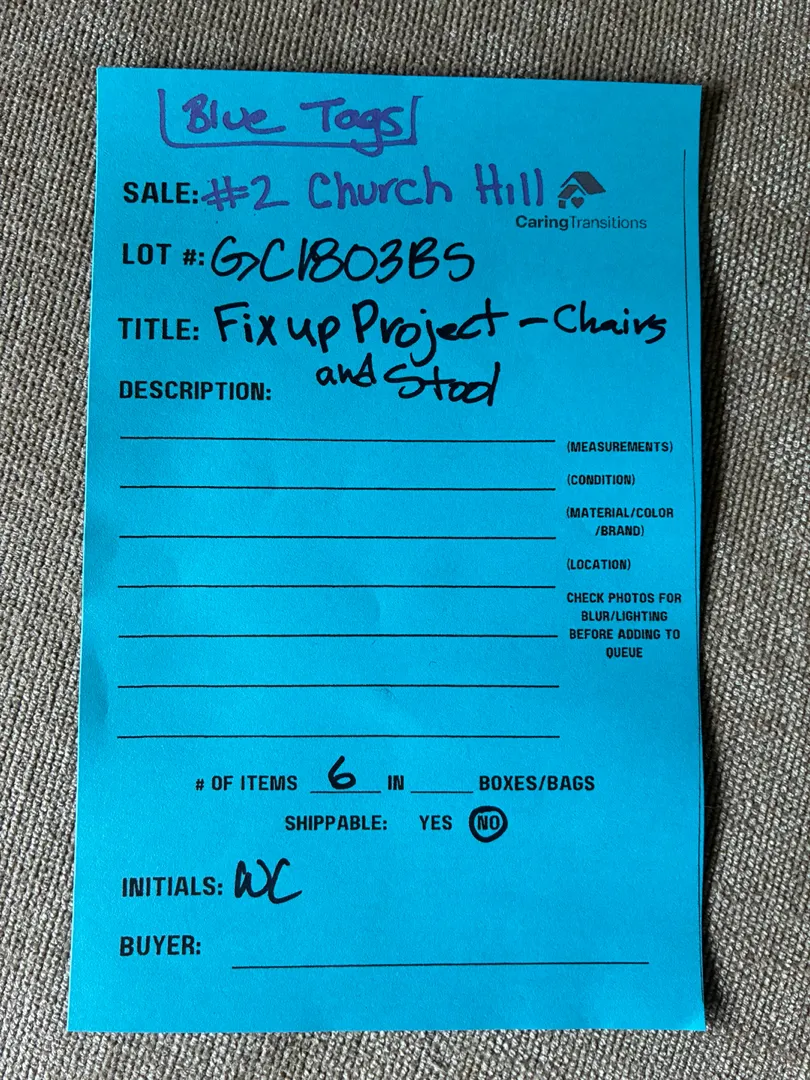 Blue Tags
SALE: #2 Church Hill
CaringTransitions
LOT #: GC1803BS
TITLE: Fix up Project - Chairs
and Stool
DESCRIPTION:
(MEASUREMENTS)
(CONDITION)
(MATERIAL/COLOR
/BRAND)
(LOCATION)
CHECK PHOTOS FOR
BLUR/LIGHTING
BEFORE ADDING TO
QUEUE
# OF ITEMS 6 IN BOXES/BAGS
SHIPPABLE: YES NO
INITIALS: WC
BUYER: